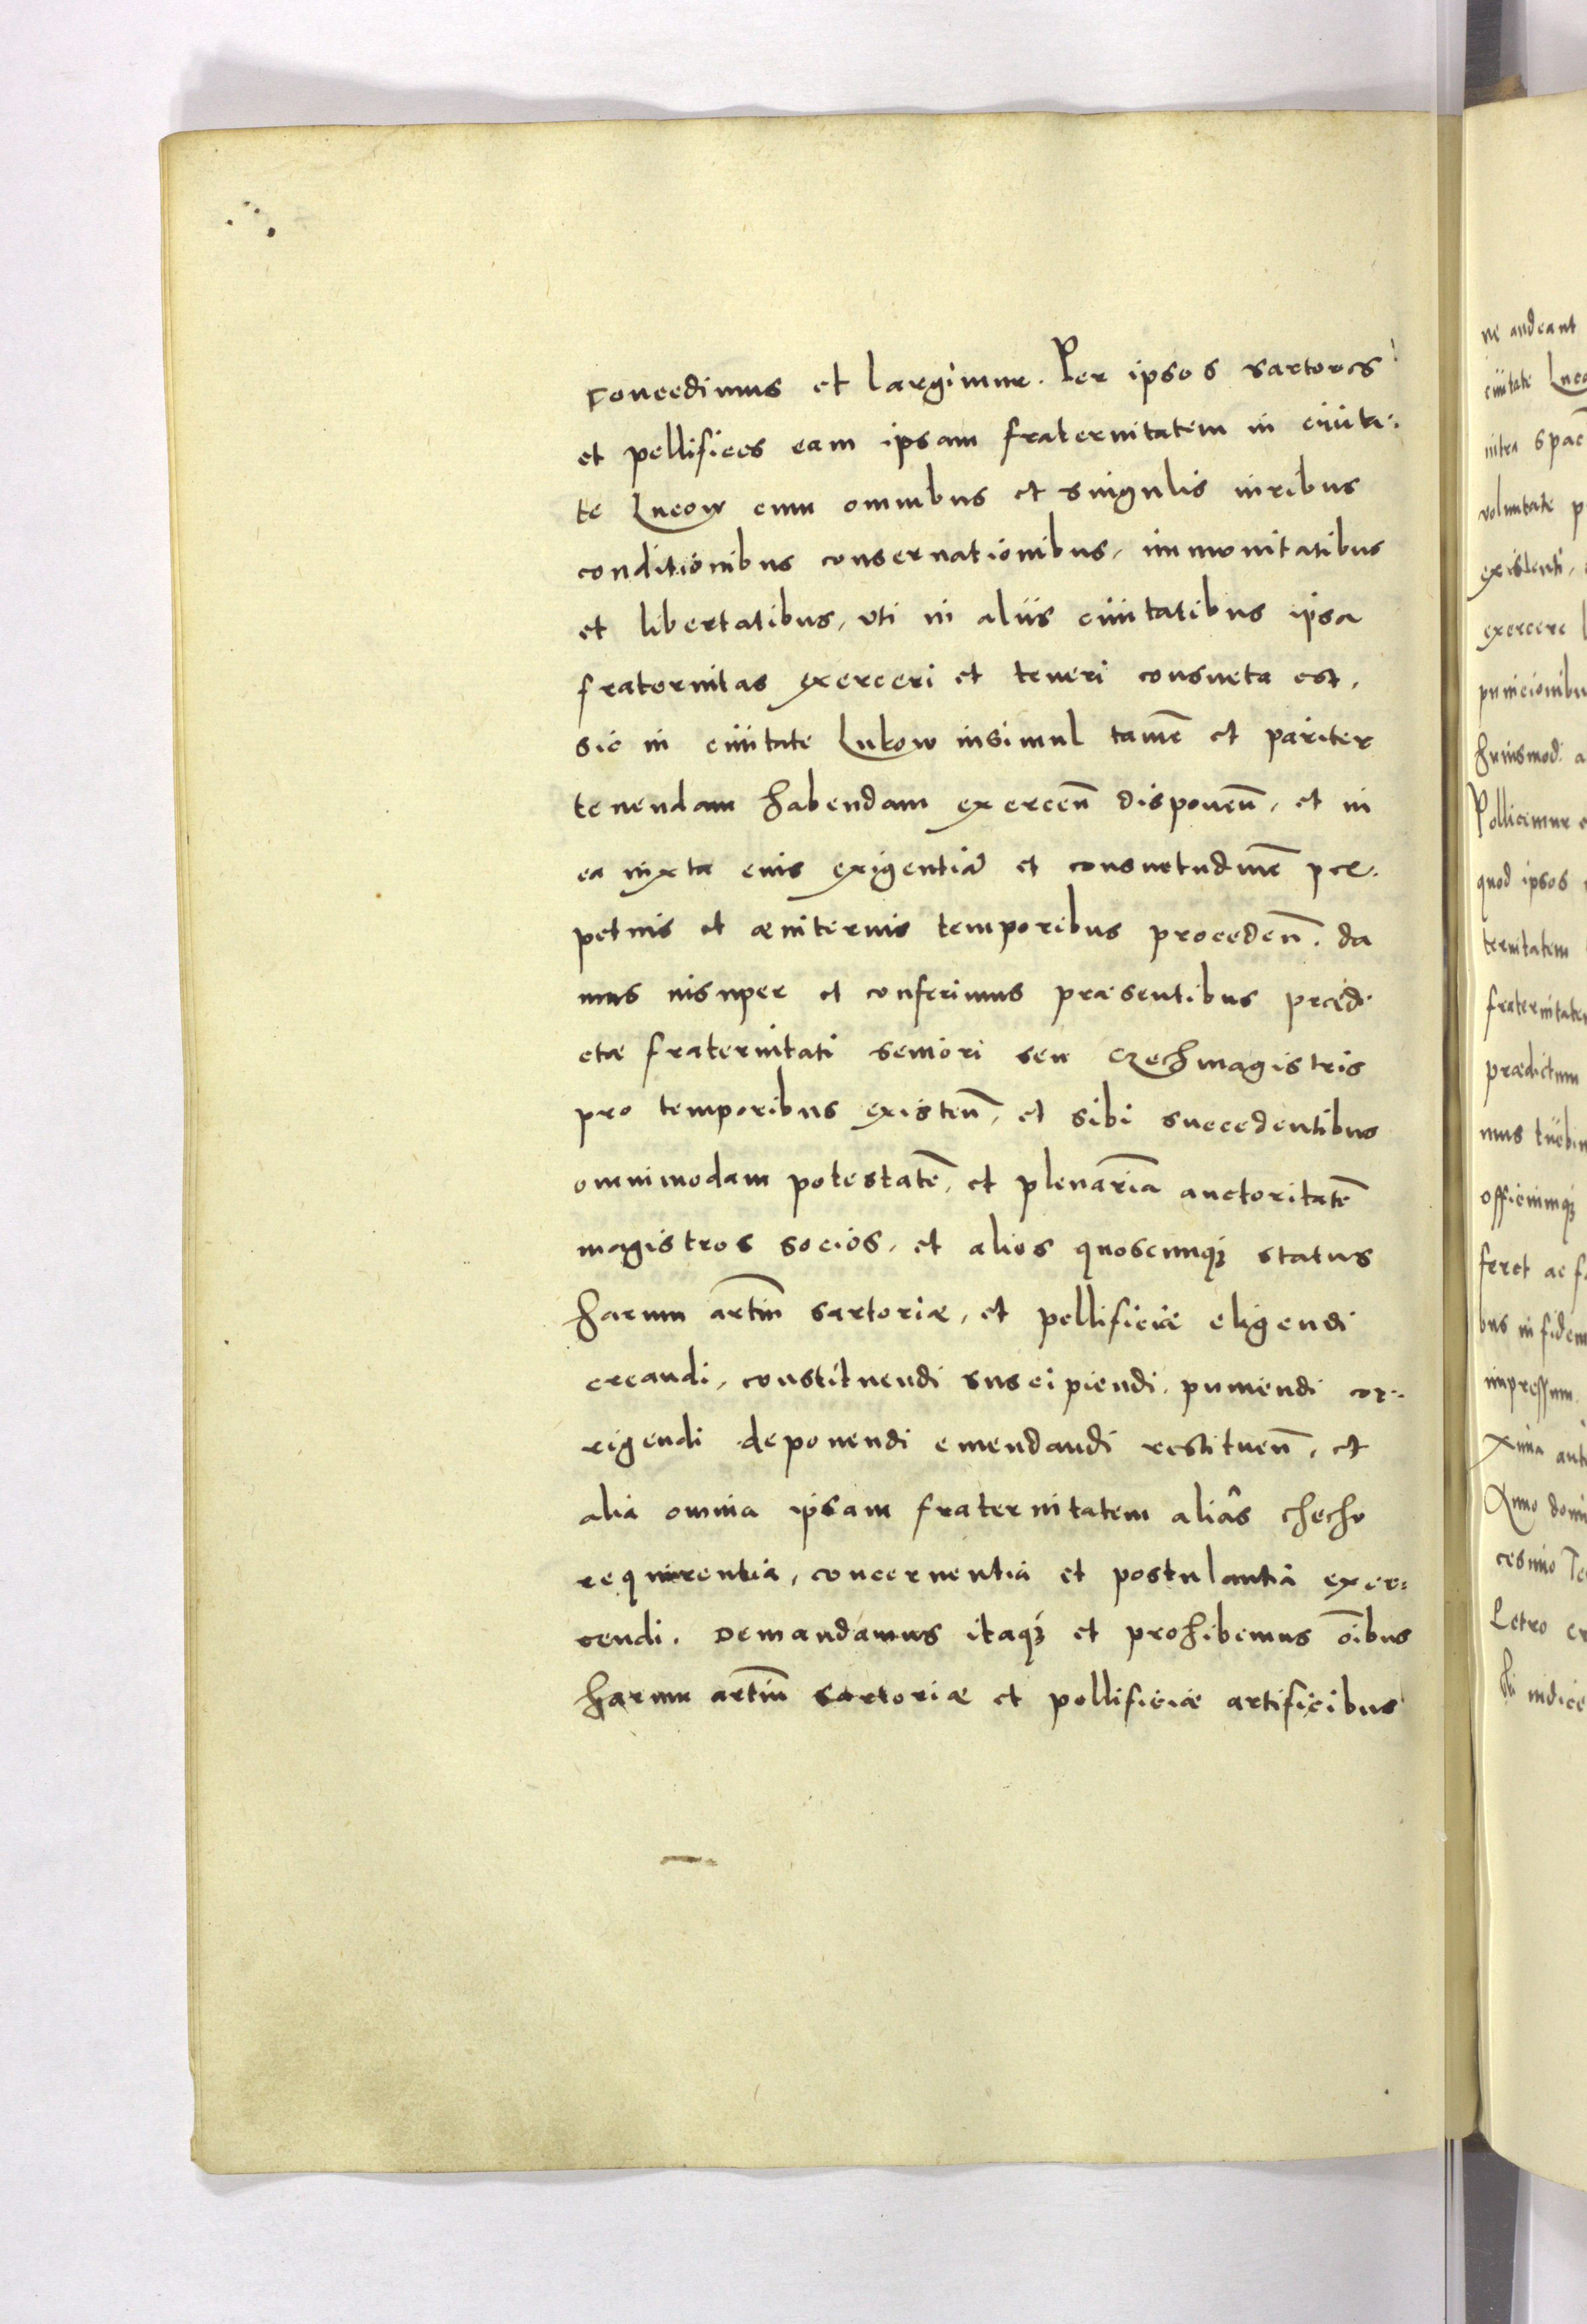 concedimus et largimur. Per ipsos sartores
et pellifices eam ipsam fraternitatem in ciuita-
te Lucow cum omnibus et singulis iuribus
conditionibus conseruationibus, immunitatibus
et libertatibus, vti in aliis ciuitatibus ipsa
fraternitas exerceri et teneri consueta est,
sic in ciuitate Lukow insimul tamē et pariter
tenendam habendam exercen̄ disponen̄, et in
ea iuxta eius exigentiā et consuetudinē per-
petuis et æuiternis temporibus proceden̄. da
mus insuper et conferimus præsentibus prædi
ctæ fraternitati seniori seu Czechmagistris
pro temporibus existen̄, et sibi succedentibus
omnimodam potestatē, et plenariā auctoritatē
magistros socios, et alios quoscunq; status
harum artiū sartoriæ, et pellificiæ eligendi
creandi, constituendi suscipiendi, puniendi cor-
rigendi deponendi emendandi restituen̄, et
alia omnia ipsam fraternitatem aliâs checho
requirentia, concernentia et postulantia exer-
cendi. Demandamus itaq; et prohibemus oībus
harum artiū sartoriæ et pellificiæ artificibus
ne audeant
ciuitate
intra
voluntate
existenti,
exercere
punicionibu
huiusmodi
Pollicemur
quod ipsos
ternitatem
fraternitatem
prædictum
officiumq;
feret ac
bus in fidem
impressum
Anno domi
cesimo
Petro
iudice